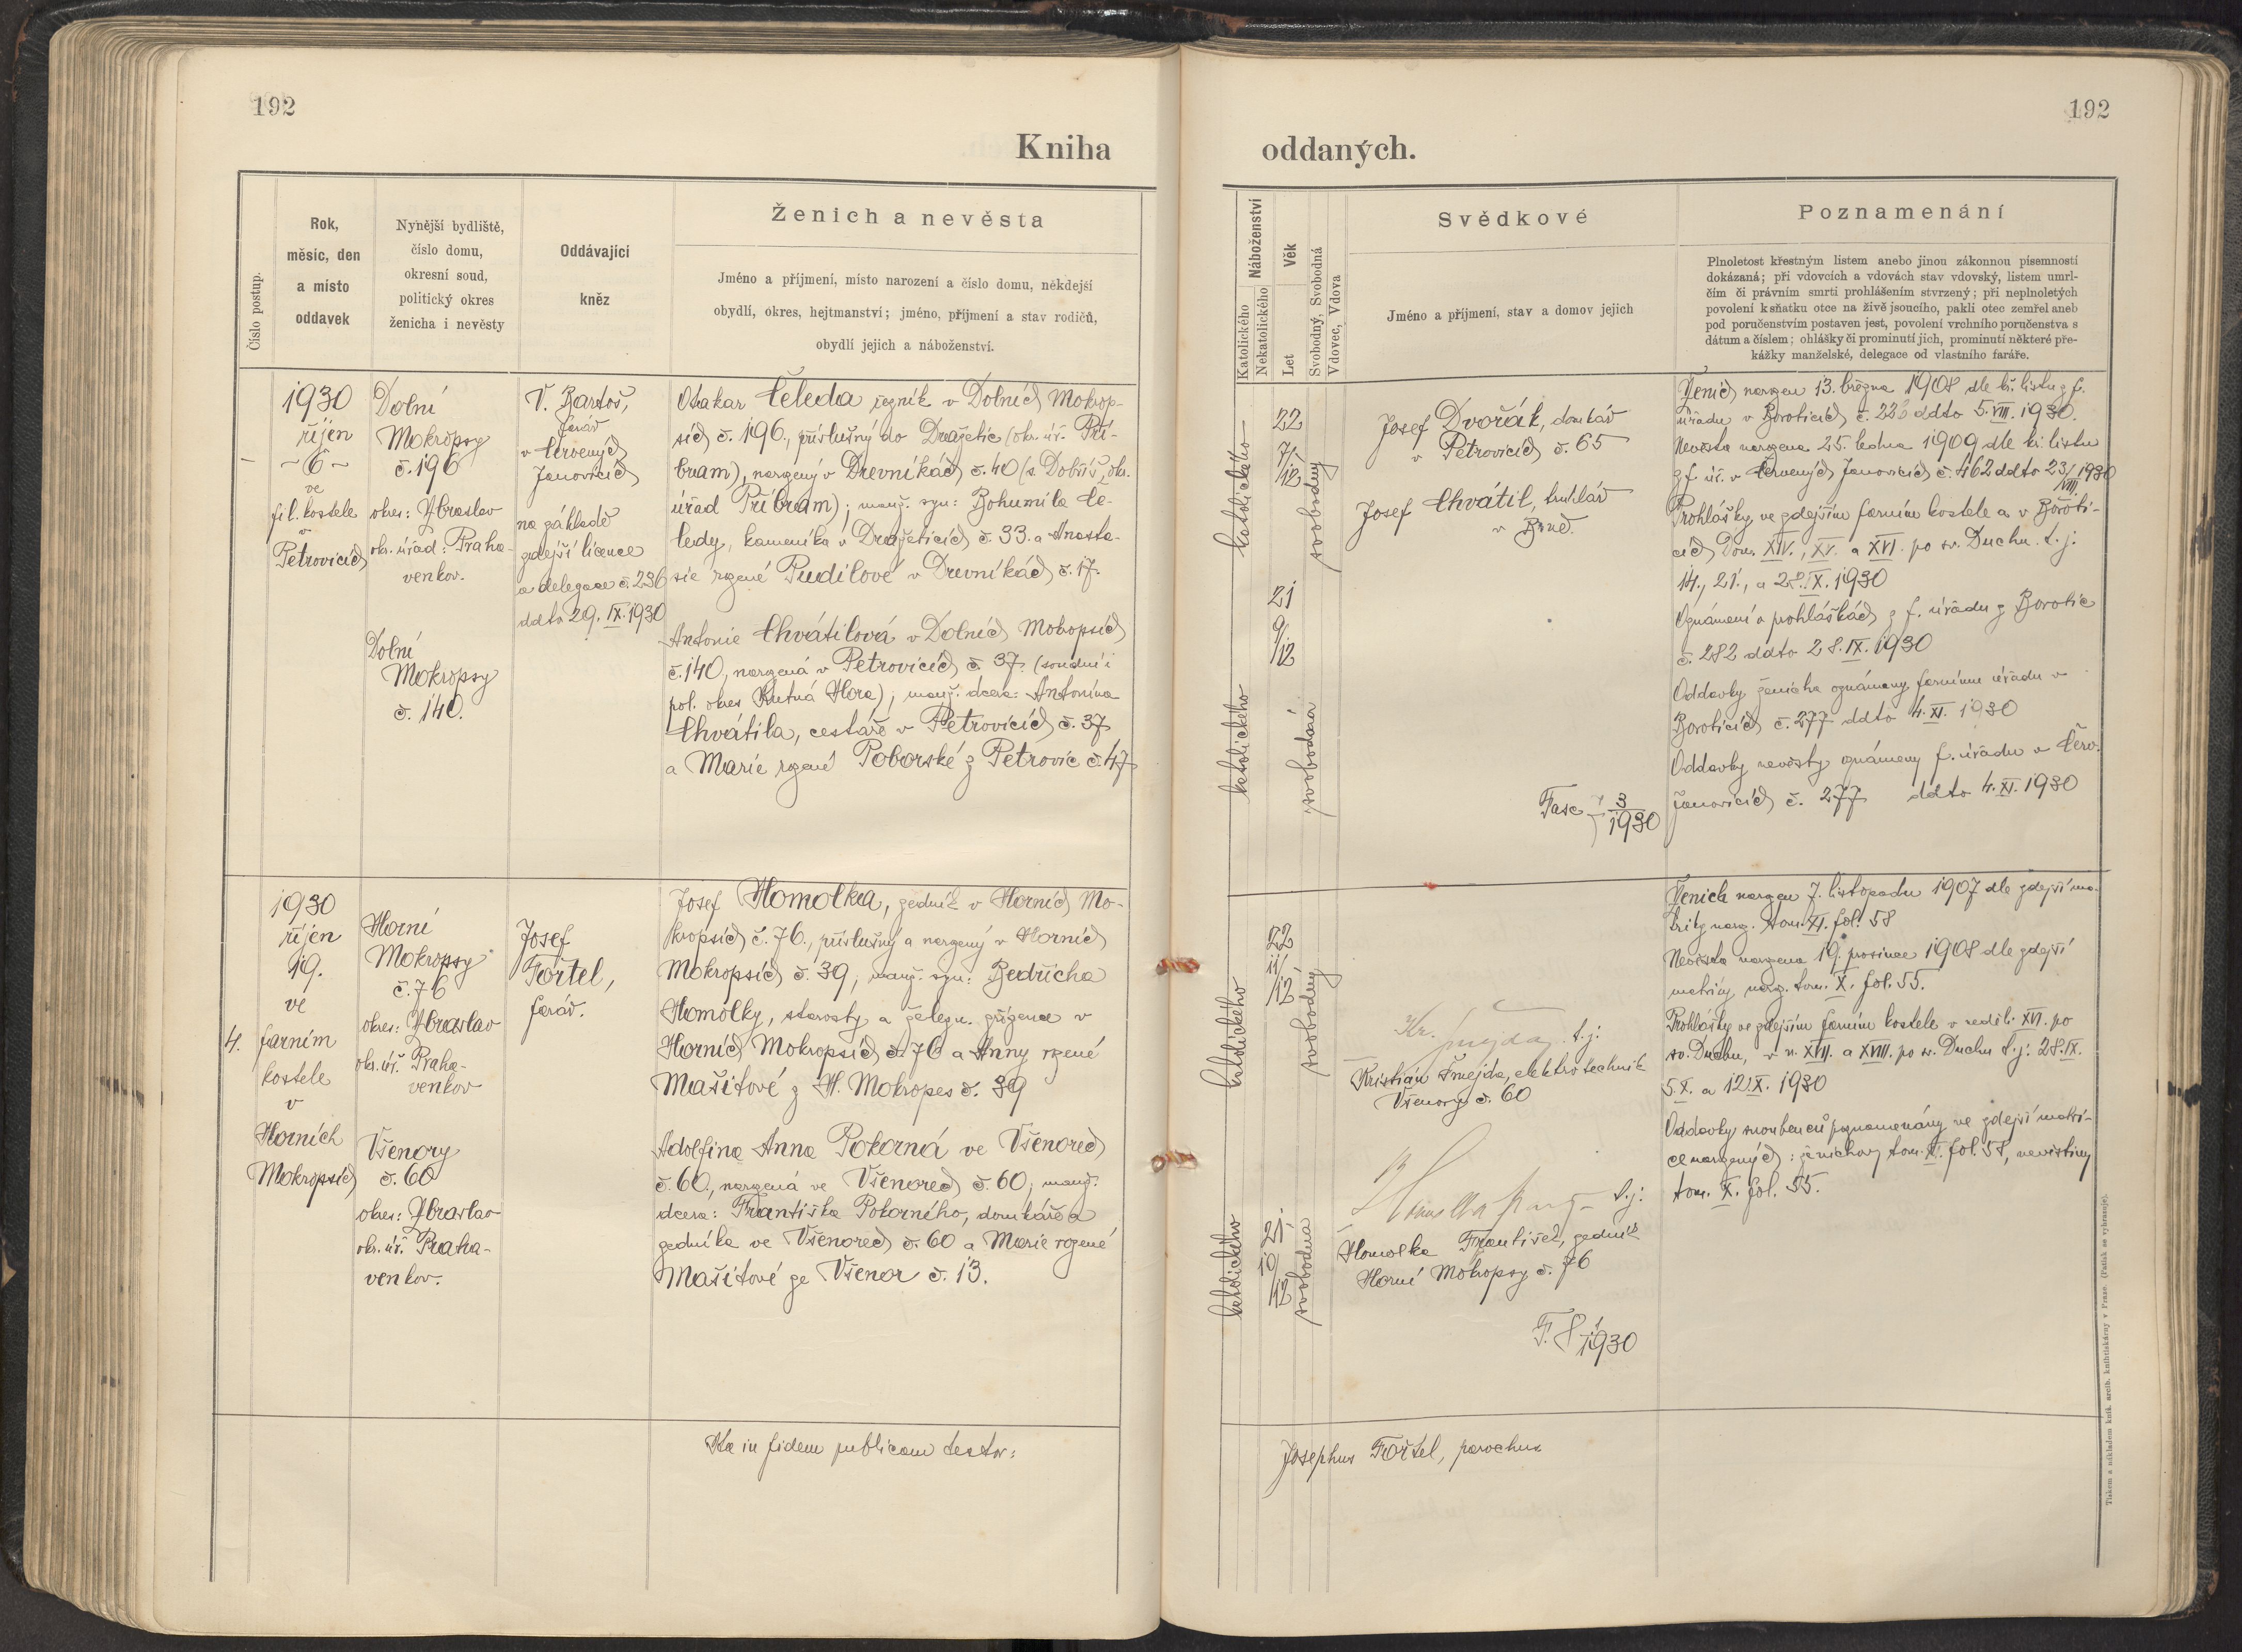 192
192
Kniha
oddaných.
Číslo postup.
Rok,
měsíc, den
a místo
oddavek
Nynější bydliště,
číslo domu,
okresní soud,
politický okres
ženicha i nevěsty
Oddávající
kněz
Ženich a nevěsta
Jméno a příjmení, místo narození a číslo domu, někdejší
obydlí, okres, hejtmanství; jméno, příjmení a stav rodičů,
obydlí jejich a náboženství.
Náboženství
Katolického
Nekatolického
Věk
Let
Svobodný, Svobodná
Vdovec, Vdova
Svědkové
Jméno a příjmení, stav a domov jejich
Poznamenání
Plnoletost křestným listem anebo jinou zákonnou písemností
dokázaná; při vdovcích a vdovách stav vdovský, listem umrl-
čím či právním smrti prohlášením stvrzený; při neplnoletých
povolení k sňatku otce na živě jsoucího, pakli otec zemřel aneb
pod poručenstvím postaven jest, povolení vrchního poručenstva s
dátum a číslem; ohlášky či prominutí jich, prominutí některé pře-
kážky manželské, delegace od vlastního faráře.
1930
říjen
~6~
ve
fil. kostele
v
Petrovicích
Dolní
Mokropsy
č. 196
okres: Zbraslav
okr. úřad: Praha-
venkov.
Dolní
Mokropsy
č. 140.
V. Bartoš,
farář
v Červených
Janovicích
na základě
zdejší licence
a delegace č. 236
ddto 29. IX. 1930
Otakar Čeleda, řezník v Dolních Mokrop-
sích č. 196., příslušný do Dražetic (okr. úř. Pří-
bram), narozený v Drevníkách č. 40 (s. Dobříš, okr.
úřad Příbram); manž. syn: Bohumila Če-
ledy, kameníka v Dražeticích č. 33. a Anasta-
sie rozené Pudilové v Drevníkách č. 17.
Antonie Chvátilová v Dolních Mokropsích
č. 140, narozená v Petrovicích č. 37. (soudní i
pol. okres Kutná Hora); manž. dcera: Antonína
Chvátila, cestáře v Petrovicích č. 37
a Marie rozené Poborské z Petrovic č. 47
katolického
22
7/12
svobodný
katolického
21
9/12
svobodná
Josef Dvořák, domkář
v Petrovicích č. 65
Josef Chvátil, truhlář
v Brně.
Fasc 3/1930
Ženich narozen 13. března 1908 dle kř. listu z f.
úřadu v Boroticích č. 226 ddto 5. VIII. 1930.
Nevěsta narozena 25. ledna 1909 dle kř. listu
z f. úř. v Červených Janovicích č. 462 ddto 23/VIII 1930
Prohlášky ve zdejším farním kostele a v Boroti-
cích Dom. XIV., XV. a XVI. po sv. Duchu t. j:
14., 21., a 28. IX. 1930
Oznámení o prohláškách z f. úřadu z Borotic
č. 282 ddto 28. IX. 1930
Oddavky ženicha oznámeny farnímu úřadu v
Boroticích č. 277 ddto 4. XI. 1930
Oddavky nevěsty oznámeny f. úřadu v Červ.
Janovicích č. 277 ddto 4. XI. 1930
4.
1930
říjen
19.
ve
farním
kostele
v
Horních
Mokropsích
Horní
Mokropsy
č. 76
okres: Zbraslav
okr. úř. Praha-
venkov
Všenory
č. 60
okres: Zbraslav
okr. úř. Praha-
venkov.
Josef
Fořtel,
farář.
Josef Homolka, zedník v Horních Mo-
kropsích č. 76., příslušný a narozený v Horních
Mokropsích č. 39, manž. syn: Bedřicha
Homolky, starosty a železn. zřízence v
Horních Mokropsích č. 76 a Anny rozené
Mašitové z H. Mokropes č. 39
Adolfina Anna Pokorná ve Všenorech
č. 60., narozená ve Všenorech č. 60; manž.
dcera: Františka Pokorného, domkáře a
zedníka ve Všenorech č. 60 a Marie rozené
Mašitové ze Všenor č. 13.
katolického
22
11/12
svobodný
katolického
21
10/12
svobodná
Kr. Šmejda t. j:
Kristian Šmejda, elektrotechnik
Všenory č. 60
t. j:
Homolka František, zedník
Horní Mokropsy č. 76
F. 8/1930
Ženich narozen 7. listopadu 1907 dle zdejší ma-
triky naroz. tom. XI. fol. 58
Nevěsta narozena 19. prosince 1908 dle zdejší
matriky naroz. tom. X. fol. 55.
Prohlášky ve zdejším farním kostele v neděli XVI. po
sv. Duchu, v n. XVII. a XVIII. po sv. Duchu t. j: 28. IX.
5. X. a 12. X. 1930
Oddavky snoubenců poznamenány ve zdejší matri-
ce narozených: ženichovy tom. XI. fol. 58, nevěstiny
tom. X. fol. 55.
Ita in fidem publicam testor:
Josephus Fořtel, parochus
Tiskem a nákladem kníž. arcib. knihtiskárny v Praze. (Patisk se vyhrazuje).